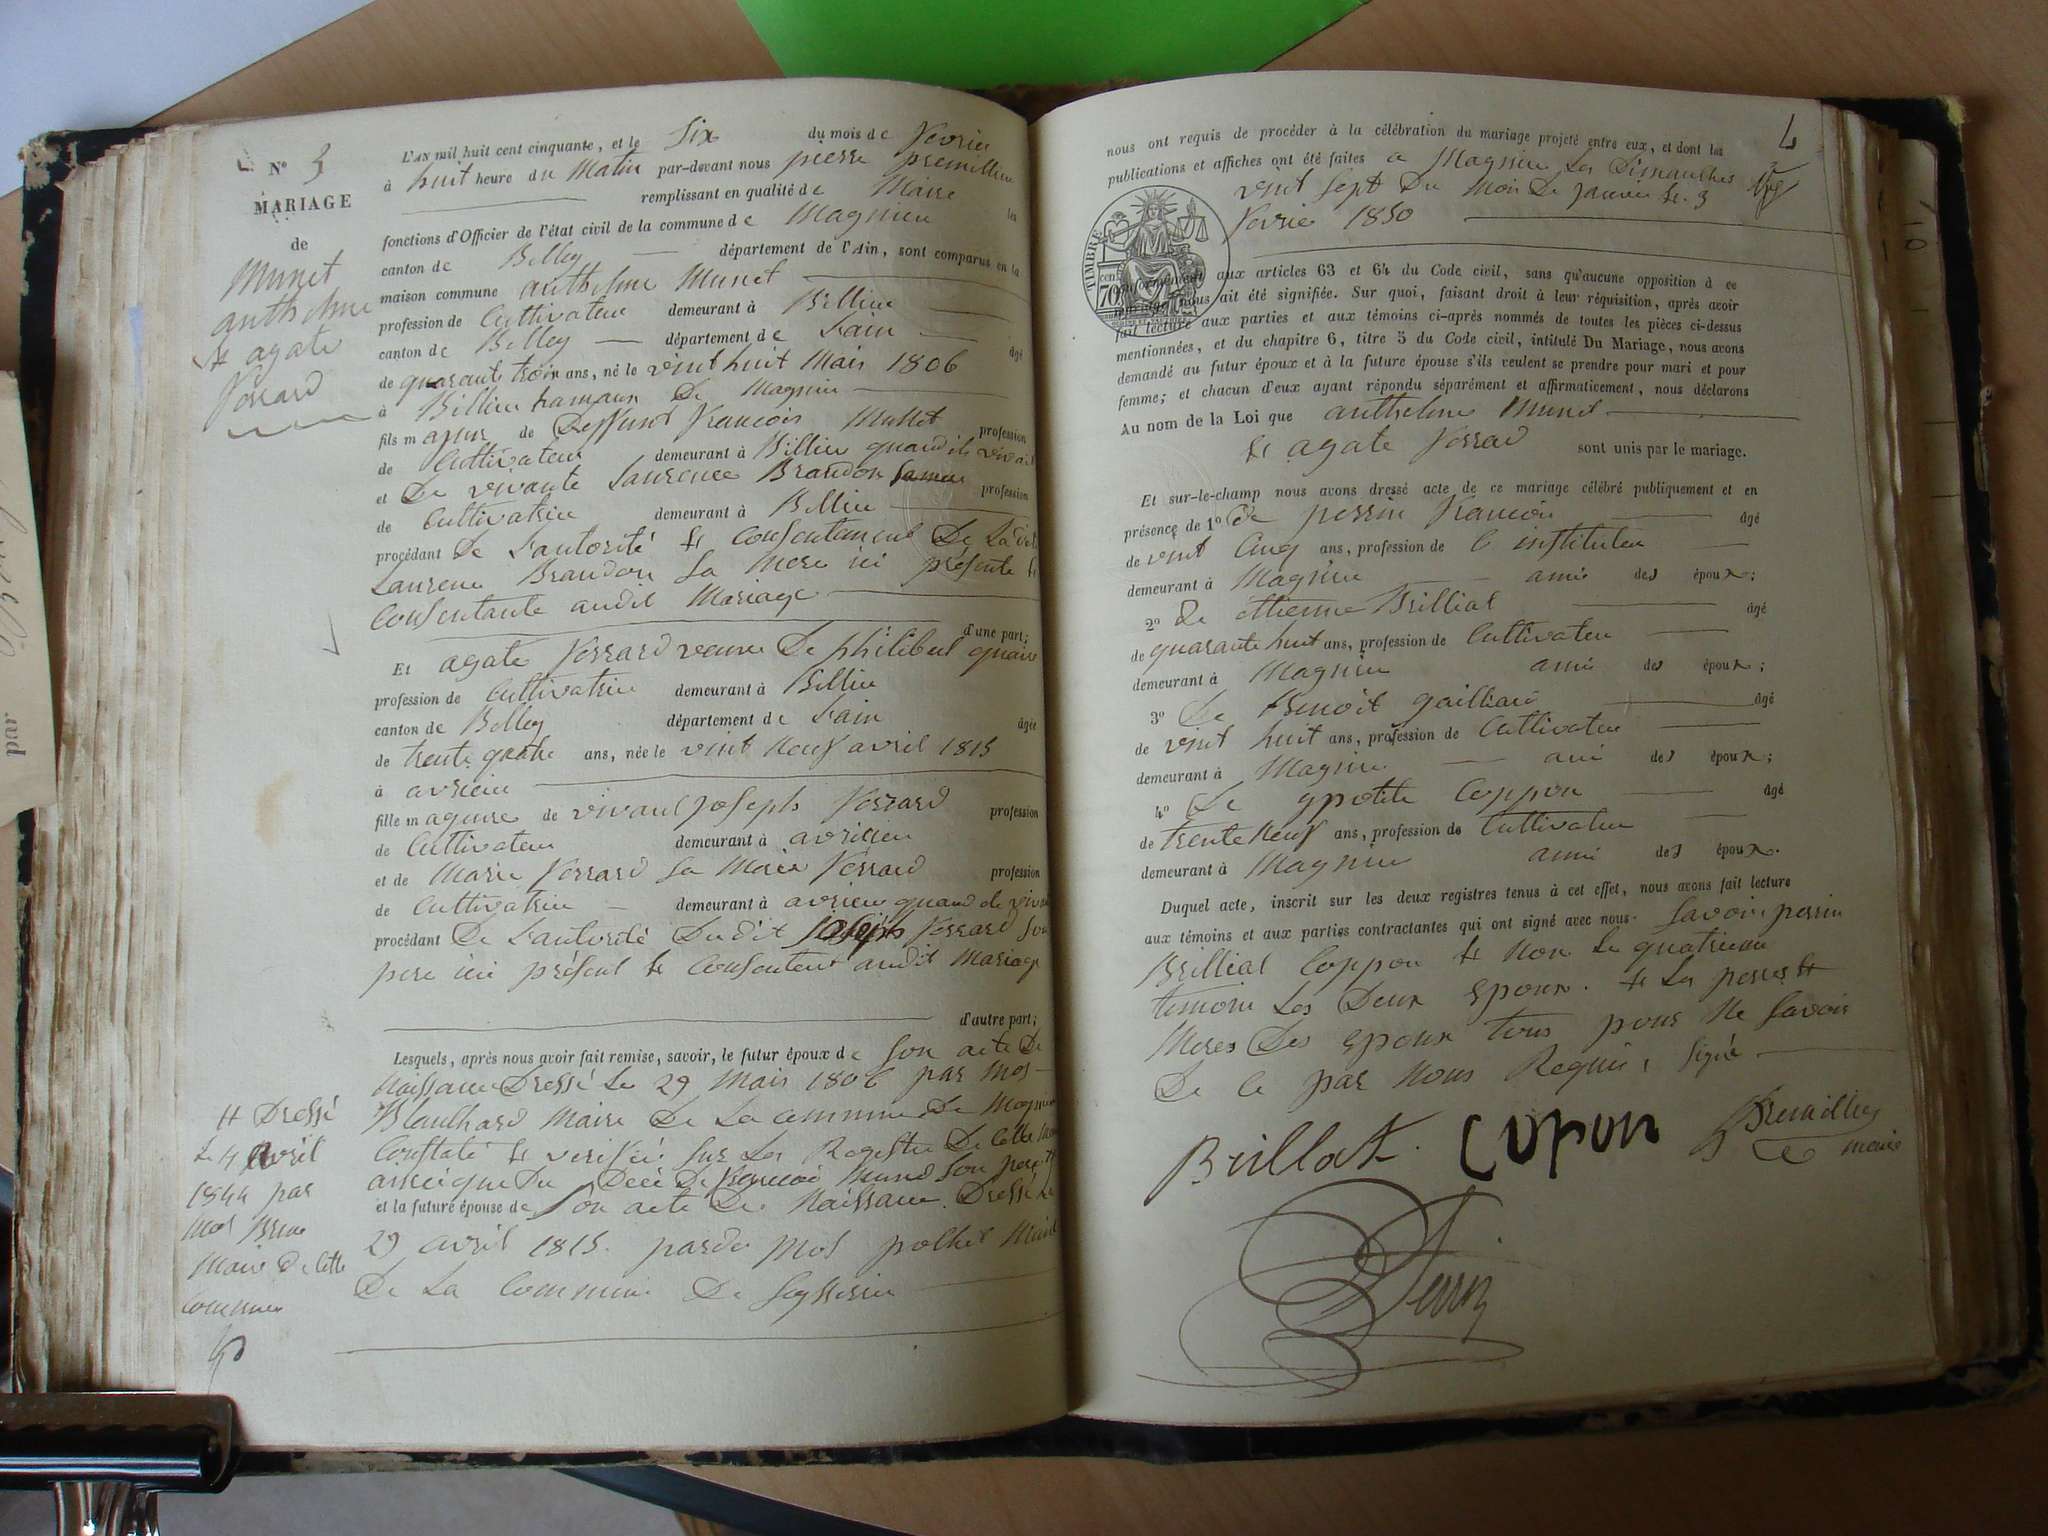 N° 3
MARIAGE
de
Munet
anthelme
et agate
Ferrard
L'AN mil huit cent cinquante, et le Six du mois de fevrier
à huit heure du Matin par-devant nous pierre premillieu
remplissant en qualité de Maire les
fonctions d'Officier de l'état civil de la commune de Magnieu
canton de Belley département de l'Ain, sont comparus en la
maison commune anthelme Munet
profession de Cultivateur demeurant à Billieu
canton de Belley département de Lain âgé
de quarante trois ans, né le vint huit Mars 1806
à Billieu hamaux De Magnieu
fils majeur de Deffunt francois Munet profession
de Cultivateur demeurant à Billieu quand il vivait
et De vivante Laurence Brandon profession
de Cultivatrice demeurant à Billieu
procédant De Lautorité et Consentement De La dite
Laurence Brandon Sa Mere ici présente et
Consentante audit Mariage
d'une part;
Et agate ferrard veuve De philibert
profession de Cultivatrice demeurant à Billieu
canton de Belley département de Lain âgée
de trente quatre ans, née le vint neuf avril 1815
à avrieu
fille mageure de vivant Joseph ferrard profession
de Cultivateur demeurant à
et de Marie ferrard profession
de Cultivatrice demeurant à quand el vivait
procédant De Lautorité Dudit joseph ferrard Son
pere ici présent et Consentent audit Mariage
d'autre part;
Lesquels, après nous avoir fait remise, savoir, le futur époux de Son acte De
Naissance Dressé Le 29 Mars 1806 par Mos
Blanchard Maire De La commune De Magnieu
Constaté et verifié Sur Les Registre De Cette
De francois Munet Son pere #
et la future épouse de Son acte De Naissance Dressé Le
29 avril 1815 Mos Maire
De La Commune De Seyssieu
# Dressé
Le 4 avril
1844 par
Mos
Maire De Cette
Commune
4
nous ont requis de procéder à la célébration du mariage projeté entre eux, et dont les
publications et affiches ont été faites a Magnieu Les Dimanches
vint Sept Du Mois De janvier et 3
fevrier 1850
TIMBRE
70
conformément aux articles 63 et 64 du Code civil, sans qu'aucune opposition à ce
mariage nous ait été signifiée. Sur quoi, faisant droit à leur réquisition, après avoir
fait lecture aux parties et aux témoins ci-après nommés de toutes les pièces ci-dessus
mentionnées, et du chapitre 6, titre 5 du Code civil, intitulé Du Mariage, nous avons
demandé au futur époux et à la future épouse s'ils veulent se prendre pour mari et pour
femme; et chacun d'eux ayant répondu séparément et affirmativement, nous déclarons
Au nom de la Loi que anthelme Munet
et agate ferrad sont unis par le mariage.
Et sur-le-champ nous avons dressé acte de ce mariage célébré publiquement et en
présence de 1° de perrin francois âgé
de vint Cinq ans, profession de instituteur
demeurant à Magnieu amis des époux;
2° De étienne Brilliat âgé
de quarante huit ans, profession de Cultivateur
demeurant à Magnieu amis des époux;
3° De Benoit gailliard âgé
de vint huit ans, profession de Cultivateur
demeurant à Magnieu ami des époux;
4° De ypolite Coppon âgé
de trente neuf ans, profession de Cultivateur
demeurant à Magnieu ami des époux.
Duquel acte, inscrit sur les deux registres tenus à cet effet, nous avons fait lecture
aux témoins et aux parties contractantes qui ont signé avec nous. Savoir perrin
Brilliat Coppon et Non Le quatrieme
temoin Les Deux Epoux. et Les peres et
Meres Des Epoux tous pour Ne Savoir
De Ce par Nous Requis, Signé
Brillat. Copon Premillieu
maire
Perrin